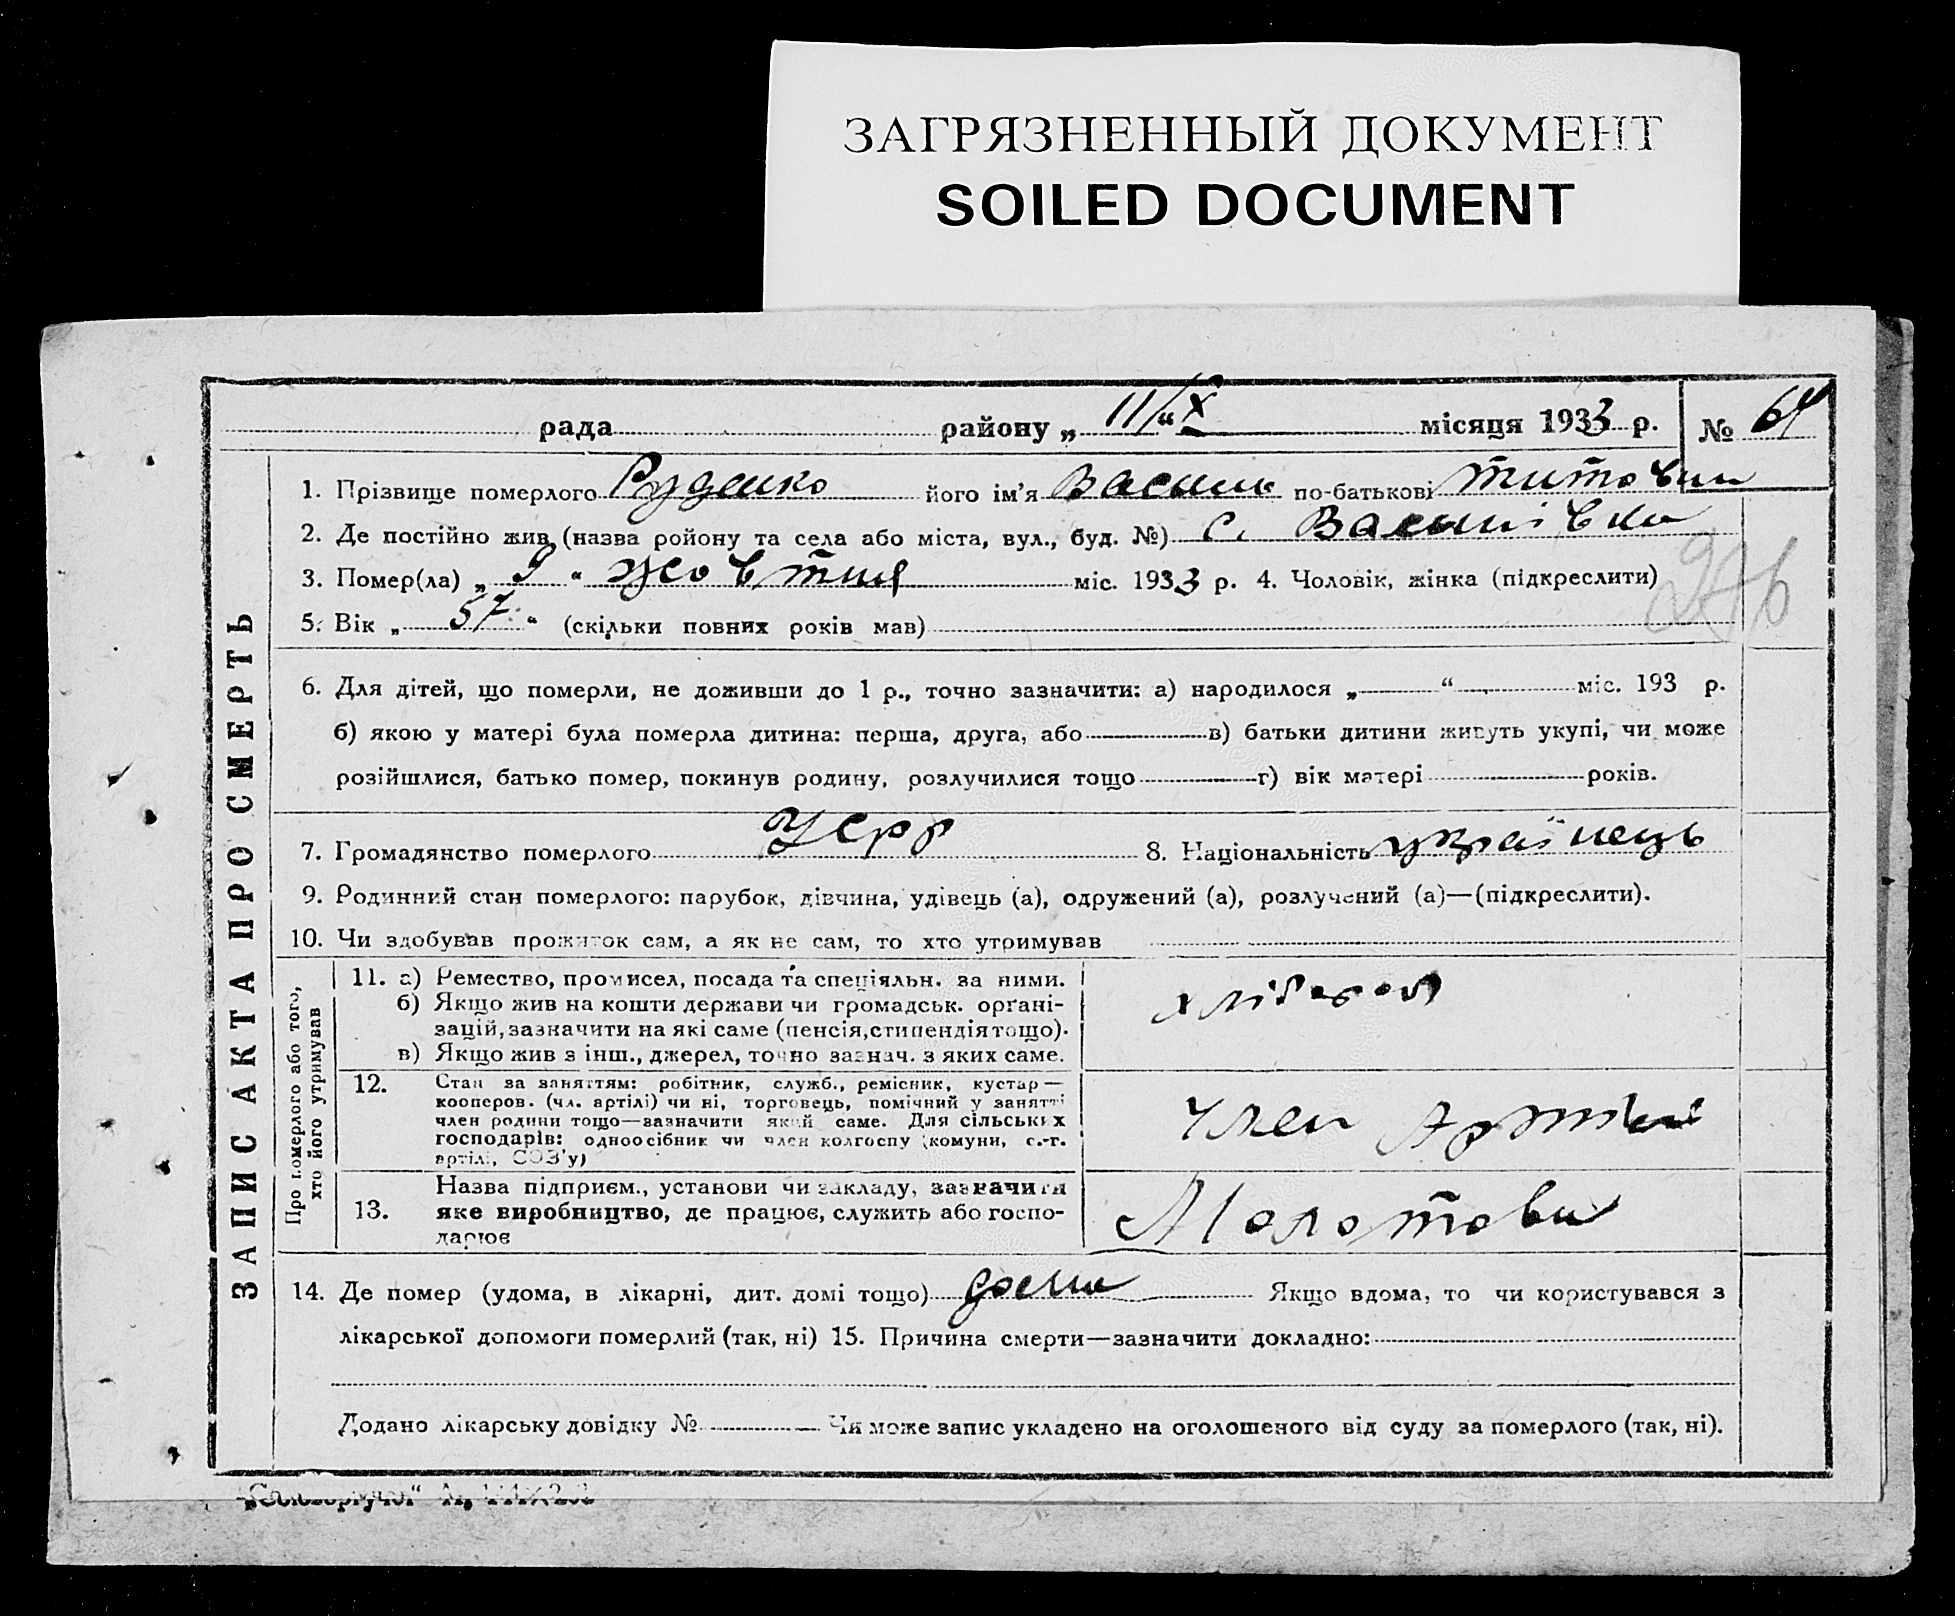 ЗАГРЯЗНЕННЫЙ ДОКУМЕНТ
SOILED DOCUMENT
рада району „ 11/ “ X місяця 1933 р. № 64
ЗАПИС АКТА ПРО СМЕРТЬ
1. Прізвище померлого Руденко його ім’я Василь по-батькові Титович
2. Де постійно жив (назва ройону та села або міста, вул., буд. №) с. Василівка
3. Помер(ла) „ 9 “ жовтня міс. 1933 р. 4. Чоловік, жінка (підкреслити)
5. Вік „ 57 “ (скільки повних років мав)
6. Для дітей, що померли, не доживши до 1 р., точно зазначити: а) народилося „ “ міс. 193 р.
б) якою у матері була померла дитина: перша, друга, або в) батьки дитини живуть укупі, чи може
розійшлися, батько помер, покинув родину, розлучилися тощо г) вік матері років.
7. Громадянство померлого УСРР 8. Національність українець
9. Родинний стан померлого: парубок, дівчина, удівець (а), одружений (а), розлучений (а)—(підкреслити).
10. Чи здобував прожиток сам, а як не сам, то хто утримував
Про померлого або того,
хто його утримував
11. а) Ремество, промисел, посада та спеціяльн. за ними. хлібороб
б) Якщо жив на кошти держави чи громадськ. орґані-
зацій, зазначити на які саме (пенсія, стипендія тощо).
в) Якщо жив з інш., джерел, точно зазнач. з яких саме.
12. Стан за заняттям: робітник, служб., ремісник, кустар—
кооперов. (чл. артілі) чи ні, торговець, помічний у занятті
член родини тощо—зазначити який саме. Для сільських
господарів: одноосібник чи член колгоспу (комуни, с.-г.
артілі, СОЗ’у)
член Артілі
13. Назва підприєм., установи чи закладу, зазначити
яке виробництво, де працює, служить або госпо-
дарює
Молотова
14. Де помер (удома, в лікарні, дит. домі тощо) дома Якщо вдома, то чи користувався з
лікарської допомоги померлий (так, ні) 15. Причина смерти—зазначити докладно:
Додано лікарську довідку № Чи може запис укладено на оголошеного від суду за померлого (так, ні).